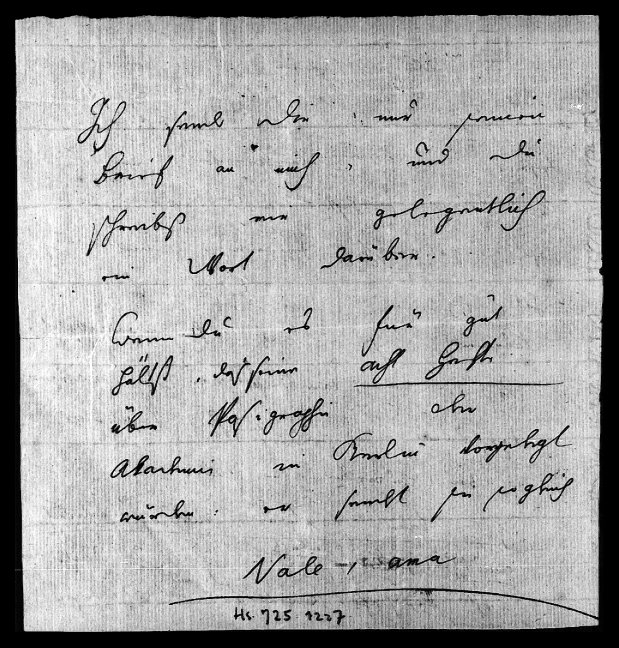 Ich sende Dir nur seinen
Brief an mich, und Du
schreibst mir gelegentlich
ein Wort darüber.
Wenn Du es für gut
hältst, daß seine acht Hefte
über Pasigraphie der
Akademie in Berlin vorgelegt
würden: er sendet sie sogleich
Vale, ama
Hs. 725 1227